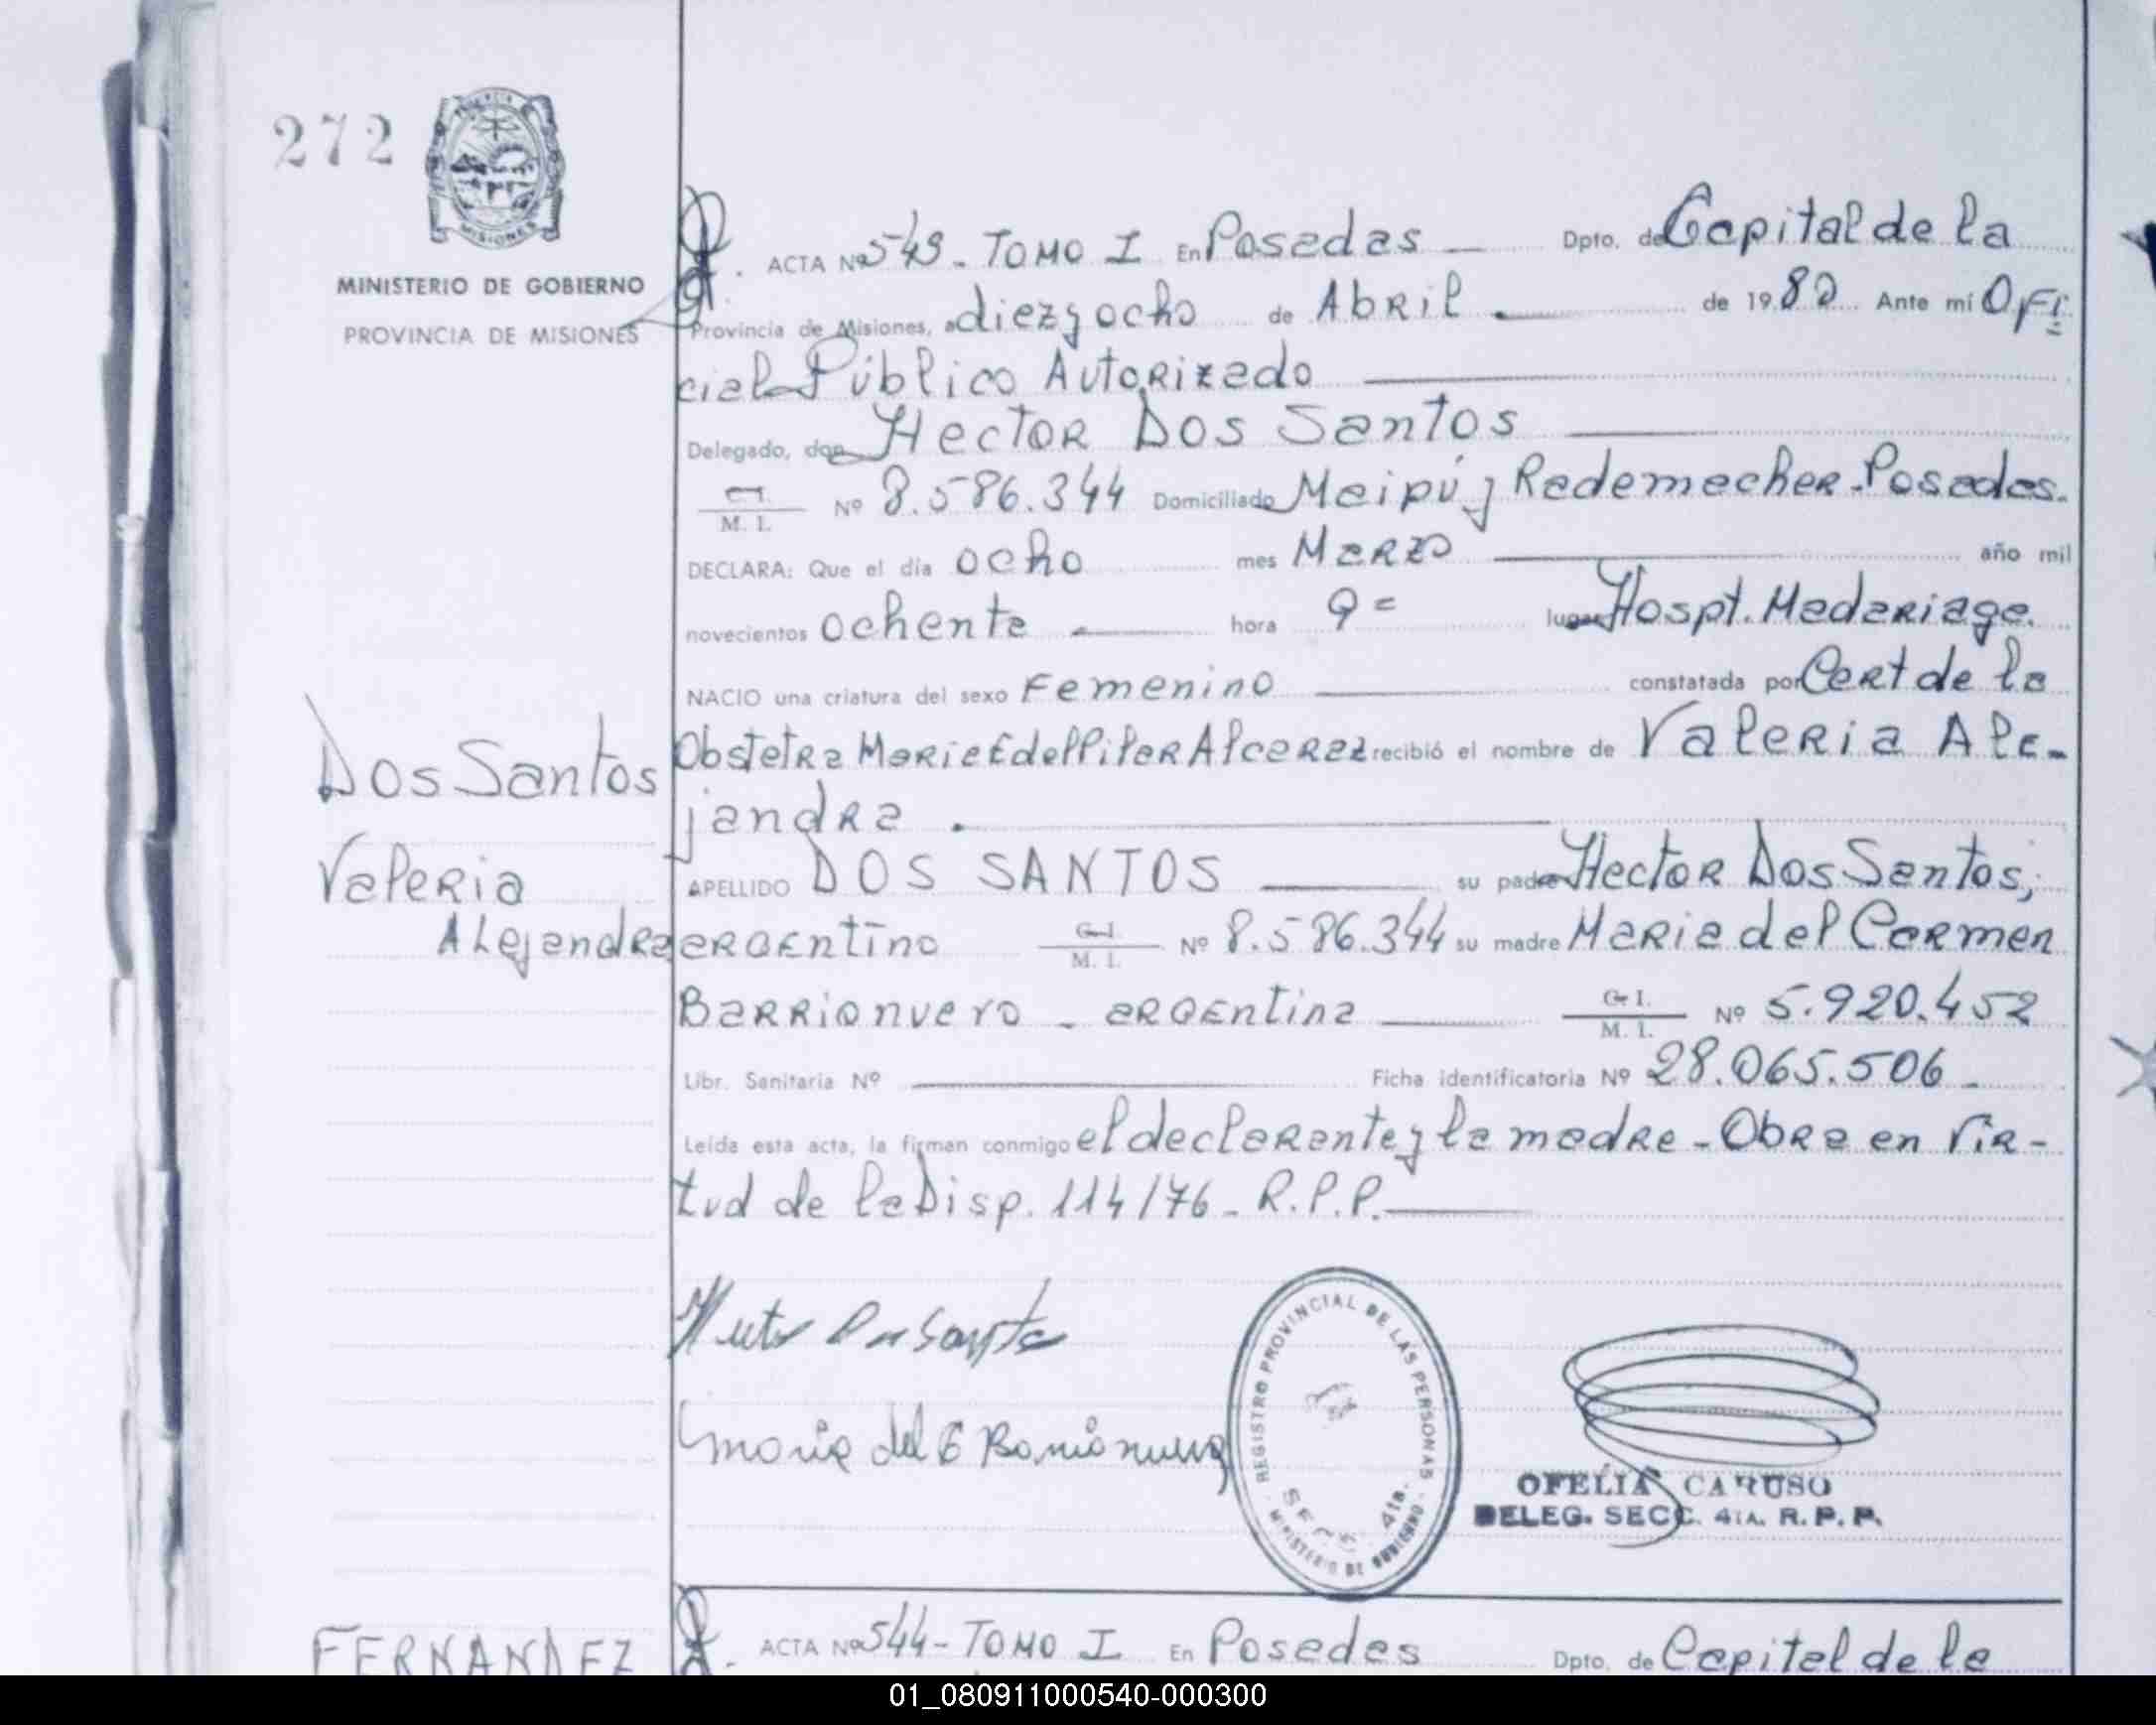 272
PROVINCIA
MISIONES
MINISTERIO DE GOBIERNO
PROVINCIA DE MISIONES
ACTA Nº 543 - TOMO I En Posadas Dpto. de Capital de la
Provincia de Misiones, a diez y ocho de Abril de 1980 Ante mí Ofi
cial Público Autorizado
Delegado, don Hector Dos Santos
M. I. Nº 8.586.344 Domiciliado Maipú y Rademacher - Posadas.
DECLARA: Que el día ocho mes Marzo año mil
novecientos ochenta hora 9 = lugar Hospt. Madariaga.
NACIO una criatura del sexo Femenino constatada por Cert de la
Obstetra Maria E del Pilar Alcaraz recibió el nombre de Valeria Ale-
jandra
Dos Santos
Valeria
Alejandra
APELLIDO DOS SANTOS su padre Hector Dos Santos,
argentino C. I. M. I. Nº 8.586.344 su madre Maria del Carmen
Barrionuevo - argentina C. I. M. I. Nº 5.920.452
Libr. Sanitaria Nº Ficha identificatoria Nº 28.065.506 -
Leída esta acta, la firman conmigo el declarante y la madre - Obra en vir-
tud de la Disp. 114/76 - R.P.P.
Hector Dos Santos
Maria del C Barrionuevo
REGISTRO PROVINCIAL DE LAS PERSONAS
SECC. 4ta.
MINISTERIO DE GOBIERNO
OFELIA CARUSO
DELEG. SECC. 4TA. R. P. P.
FERNANDEZ
ACTA Nº 544 - TOMO I En Posadas Dpto. de Capital de la
01_080911000540-000300